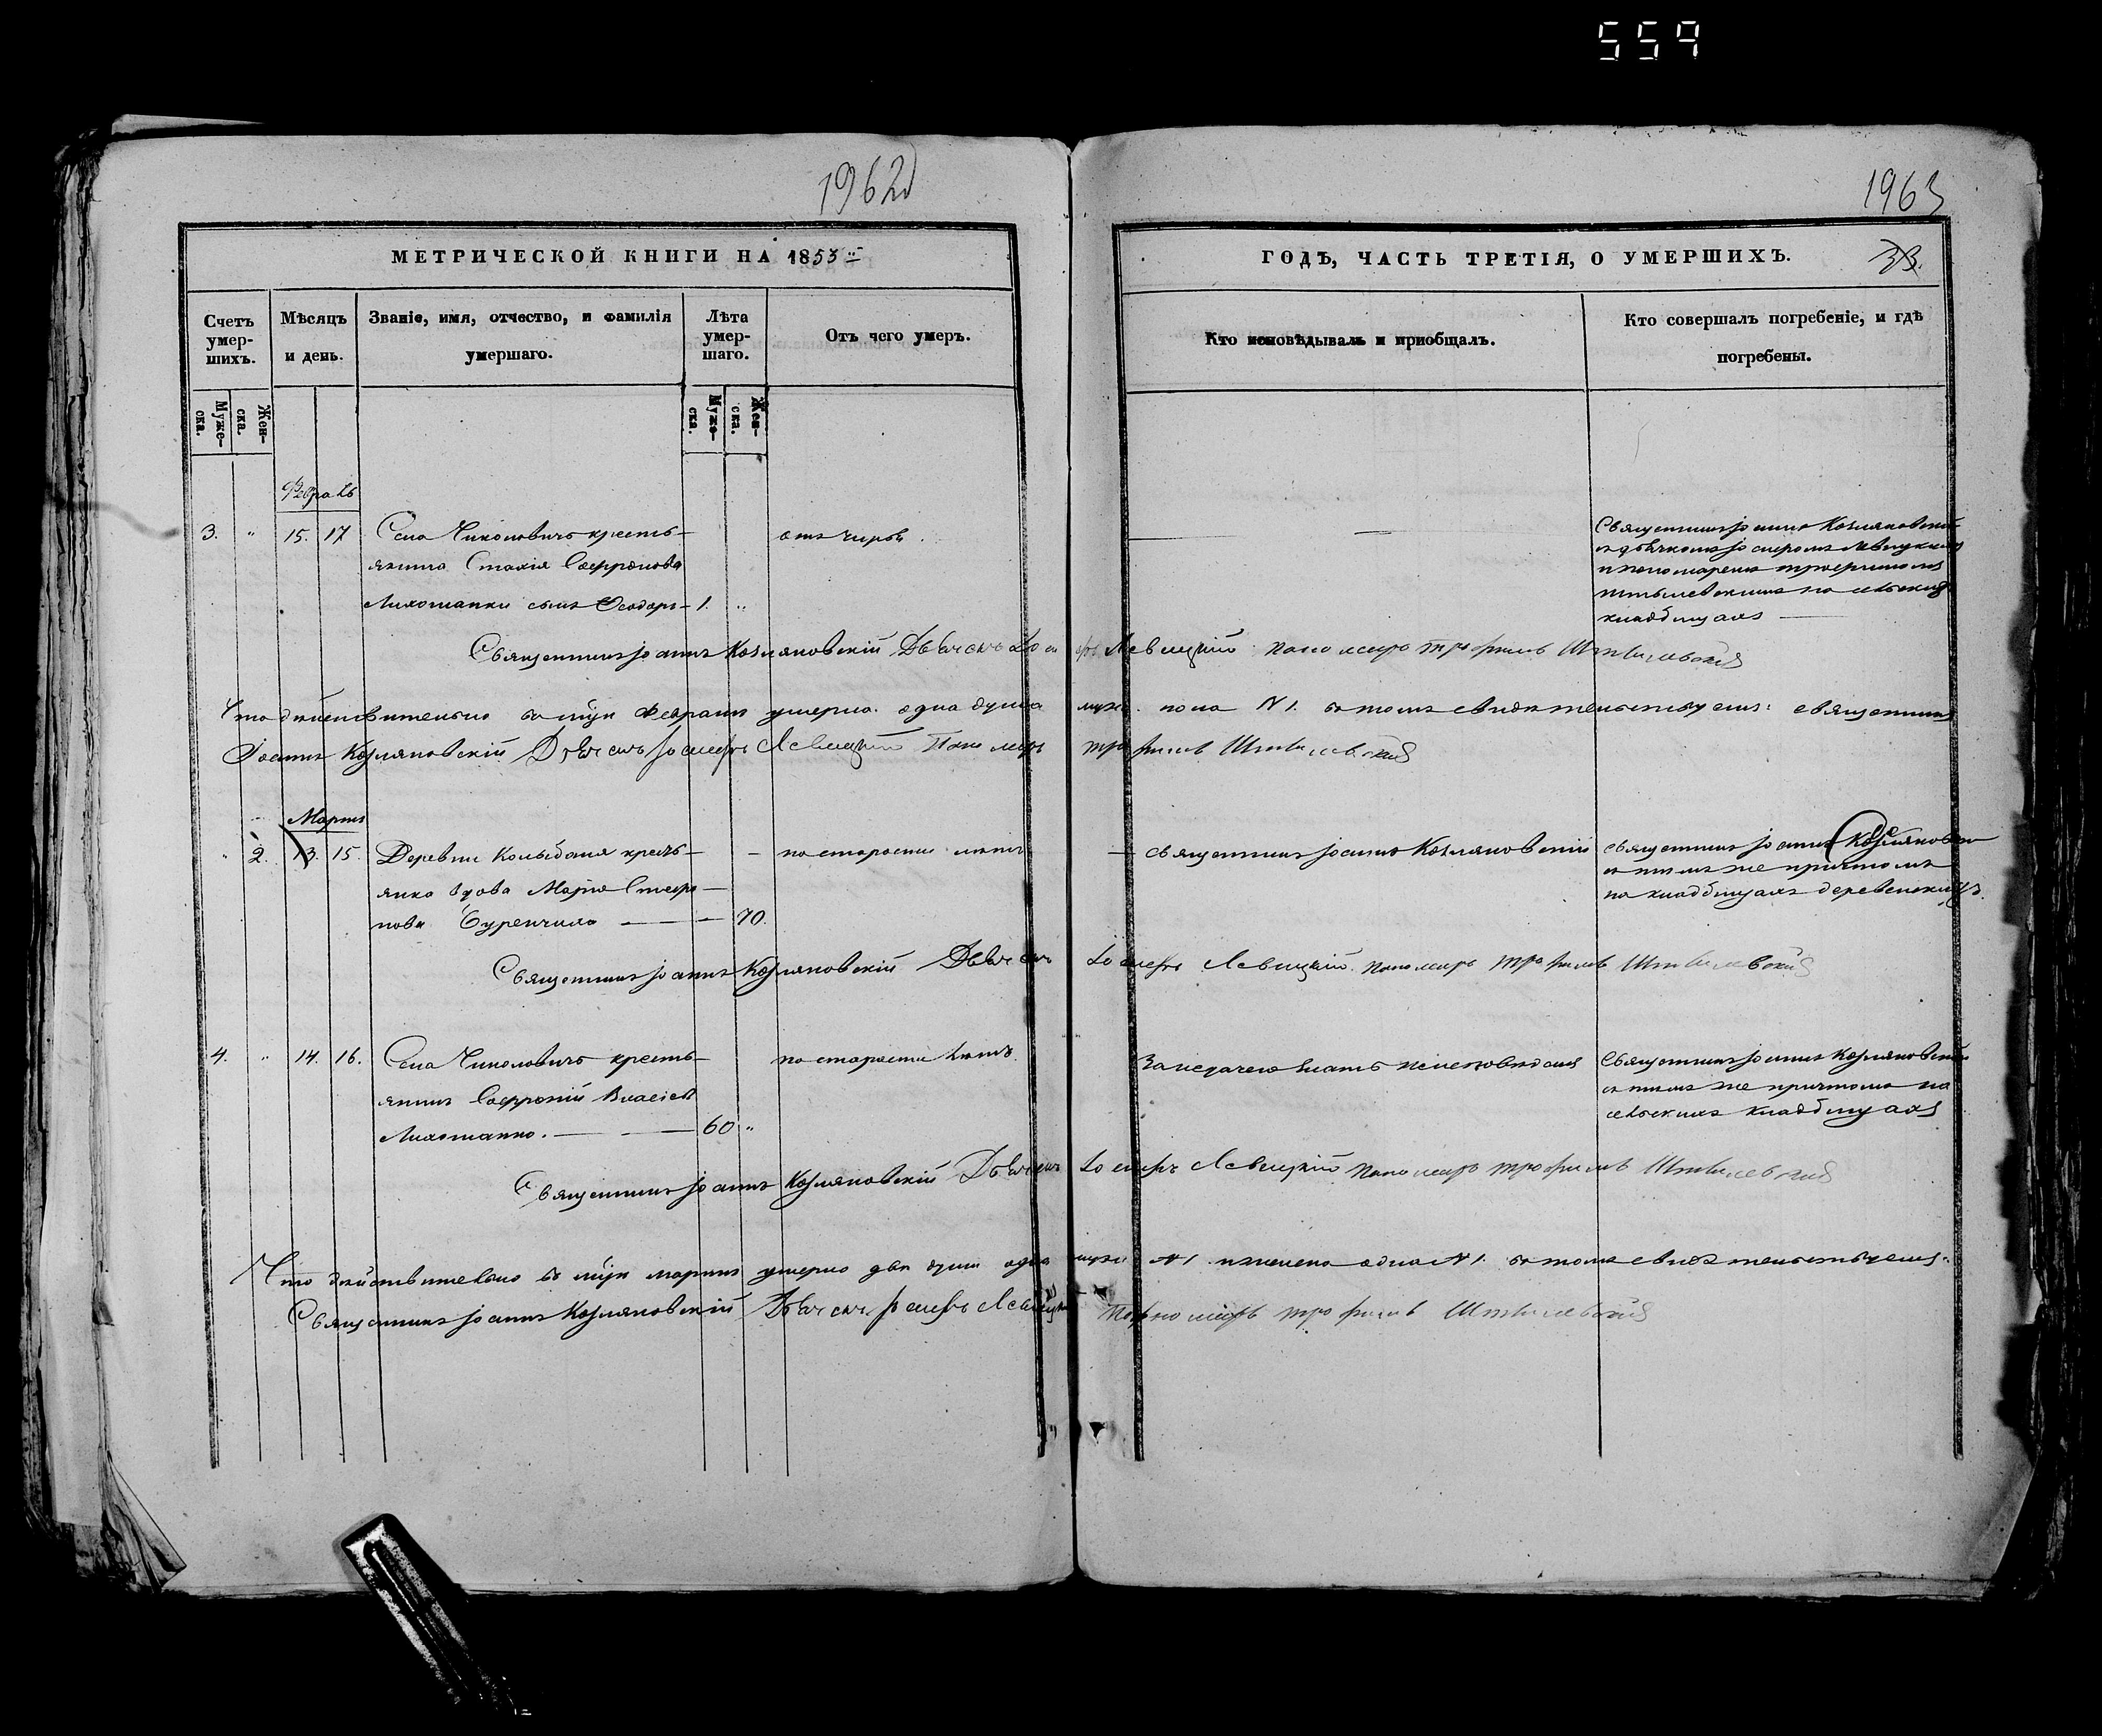 559
1962
1963
МЕТРИЧЕСКОЙ КНИГИ НА 1853
ГОДЪ, ЧАСТЬ ТРЕТІЯ, О УМЕРШИХЪ.
33.
Счетъ умер-шихъ.
Мѣсяцъ и день.
Званіе, имя, отчество, и фамилія умершаго.
Лѣта умер-шаго.
Отъ чего умеръ.
Кто исповѣдывалъ и приобщалъ.
Кто совершалъ погребеніе, и гдѣ погребены.
Муже-ска.
Жен-ска.
Муже-ска.
Жен-ска.
Февраль
3. " 15. 17 Села кресть-
янина Стахія Софронова
сынъ Ѳеодоръ - 1. "
отъ
Священникъ Іоаннъ Козляновскій
съ дьячкомъ Іосифомъ Левицкимъ
и пономаремъ Трофимомъ
на сельскихъ
кладбищахъ
Священникъ Іоаннъ Козляновскій Дьячекъ Іосифъ Левицкій пономарь Трофимъ
Что дѣйствительно въ м-цѣ Февралѣ умерла одна душа муж. пола N 1. въ томъ свидѣтельствуемъ: священникъ
Іоаннъ Козляновскій Дьячекъ Іосифъ Левицкій Пономарь Трофимъ
Мартъ
" 2. 13. 15. Деревни кресть-
янка вдова Марія Стефа-
нова - 70.
по старости лѣтъ
священникъ Іоаннъ Козляновскій
священникъ Іоаннъ Козляновскій
съ тѣмъ же причтомъ
на кладбищахъ деревенскихъ.
Священникъ Іоаннъ Козляновскій Дьячекъ Іосифъ Левицкій пономарь Трофимъ
4. " 14. 16. Села кресть-
янинъ Софроній Власіевъ
60 "
по старости лѣтъ.
За недачею знать неисповѣданъ
Священникъ Іоаннъ Козляновскій
съ тѣмъ же причтомъ на
сельскихъ кладбищахъ
Священникъ Іоаннъ Козляновскій Дьячекъ Іосифъ Левицкій пономарь Трофимъ
Что дѣйствительно въ м-цѣ мартѣ умерло двѣ души одна муж N 1 и женска одна N 1. въ томъ свидѣтельствуемъ:
Священникъ Іоаннъ Козляновскій Дьячекъ Іосифъ Левицкій Пономарь Трофимъ